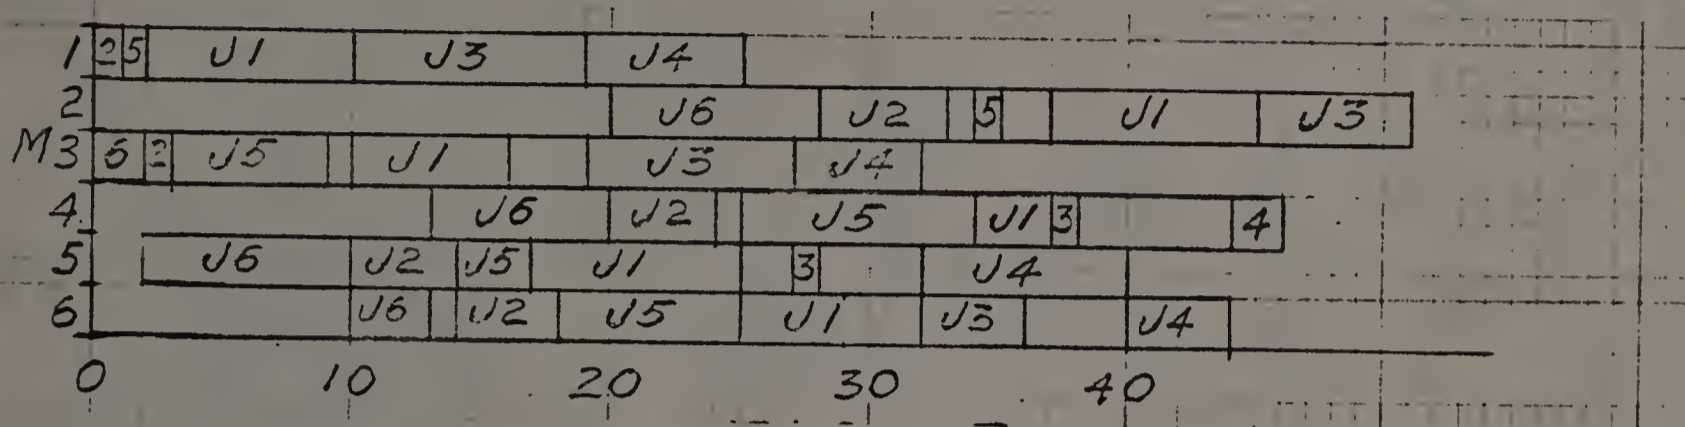 1 2 5 J1 J3 J4
2 J6 J2 5 J1 J3
M3 6 2 J5 J1 J3 J4
4 J6 J2 J5 J1 3 4
5 J6 J2 J5 J1 3 J4
6 J6 J2 J5 J1 J3 J4
0 10 20 30 40